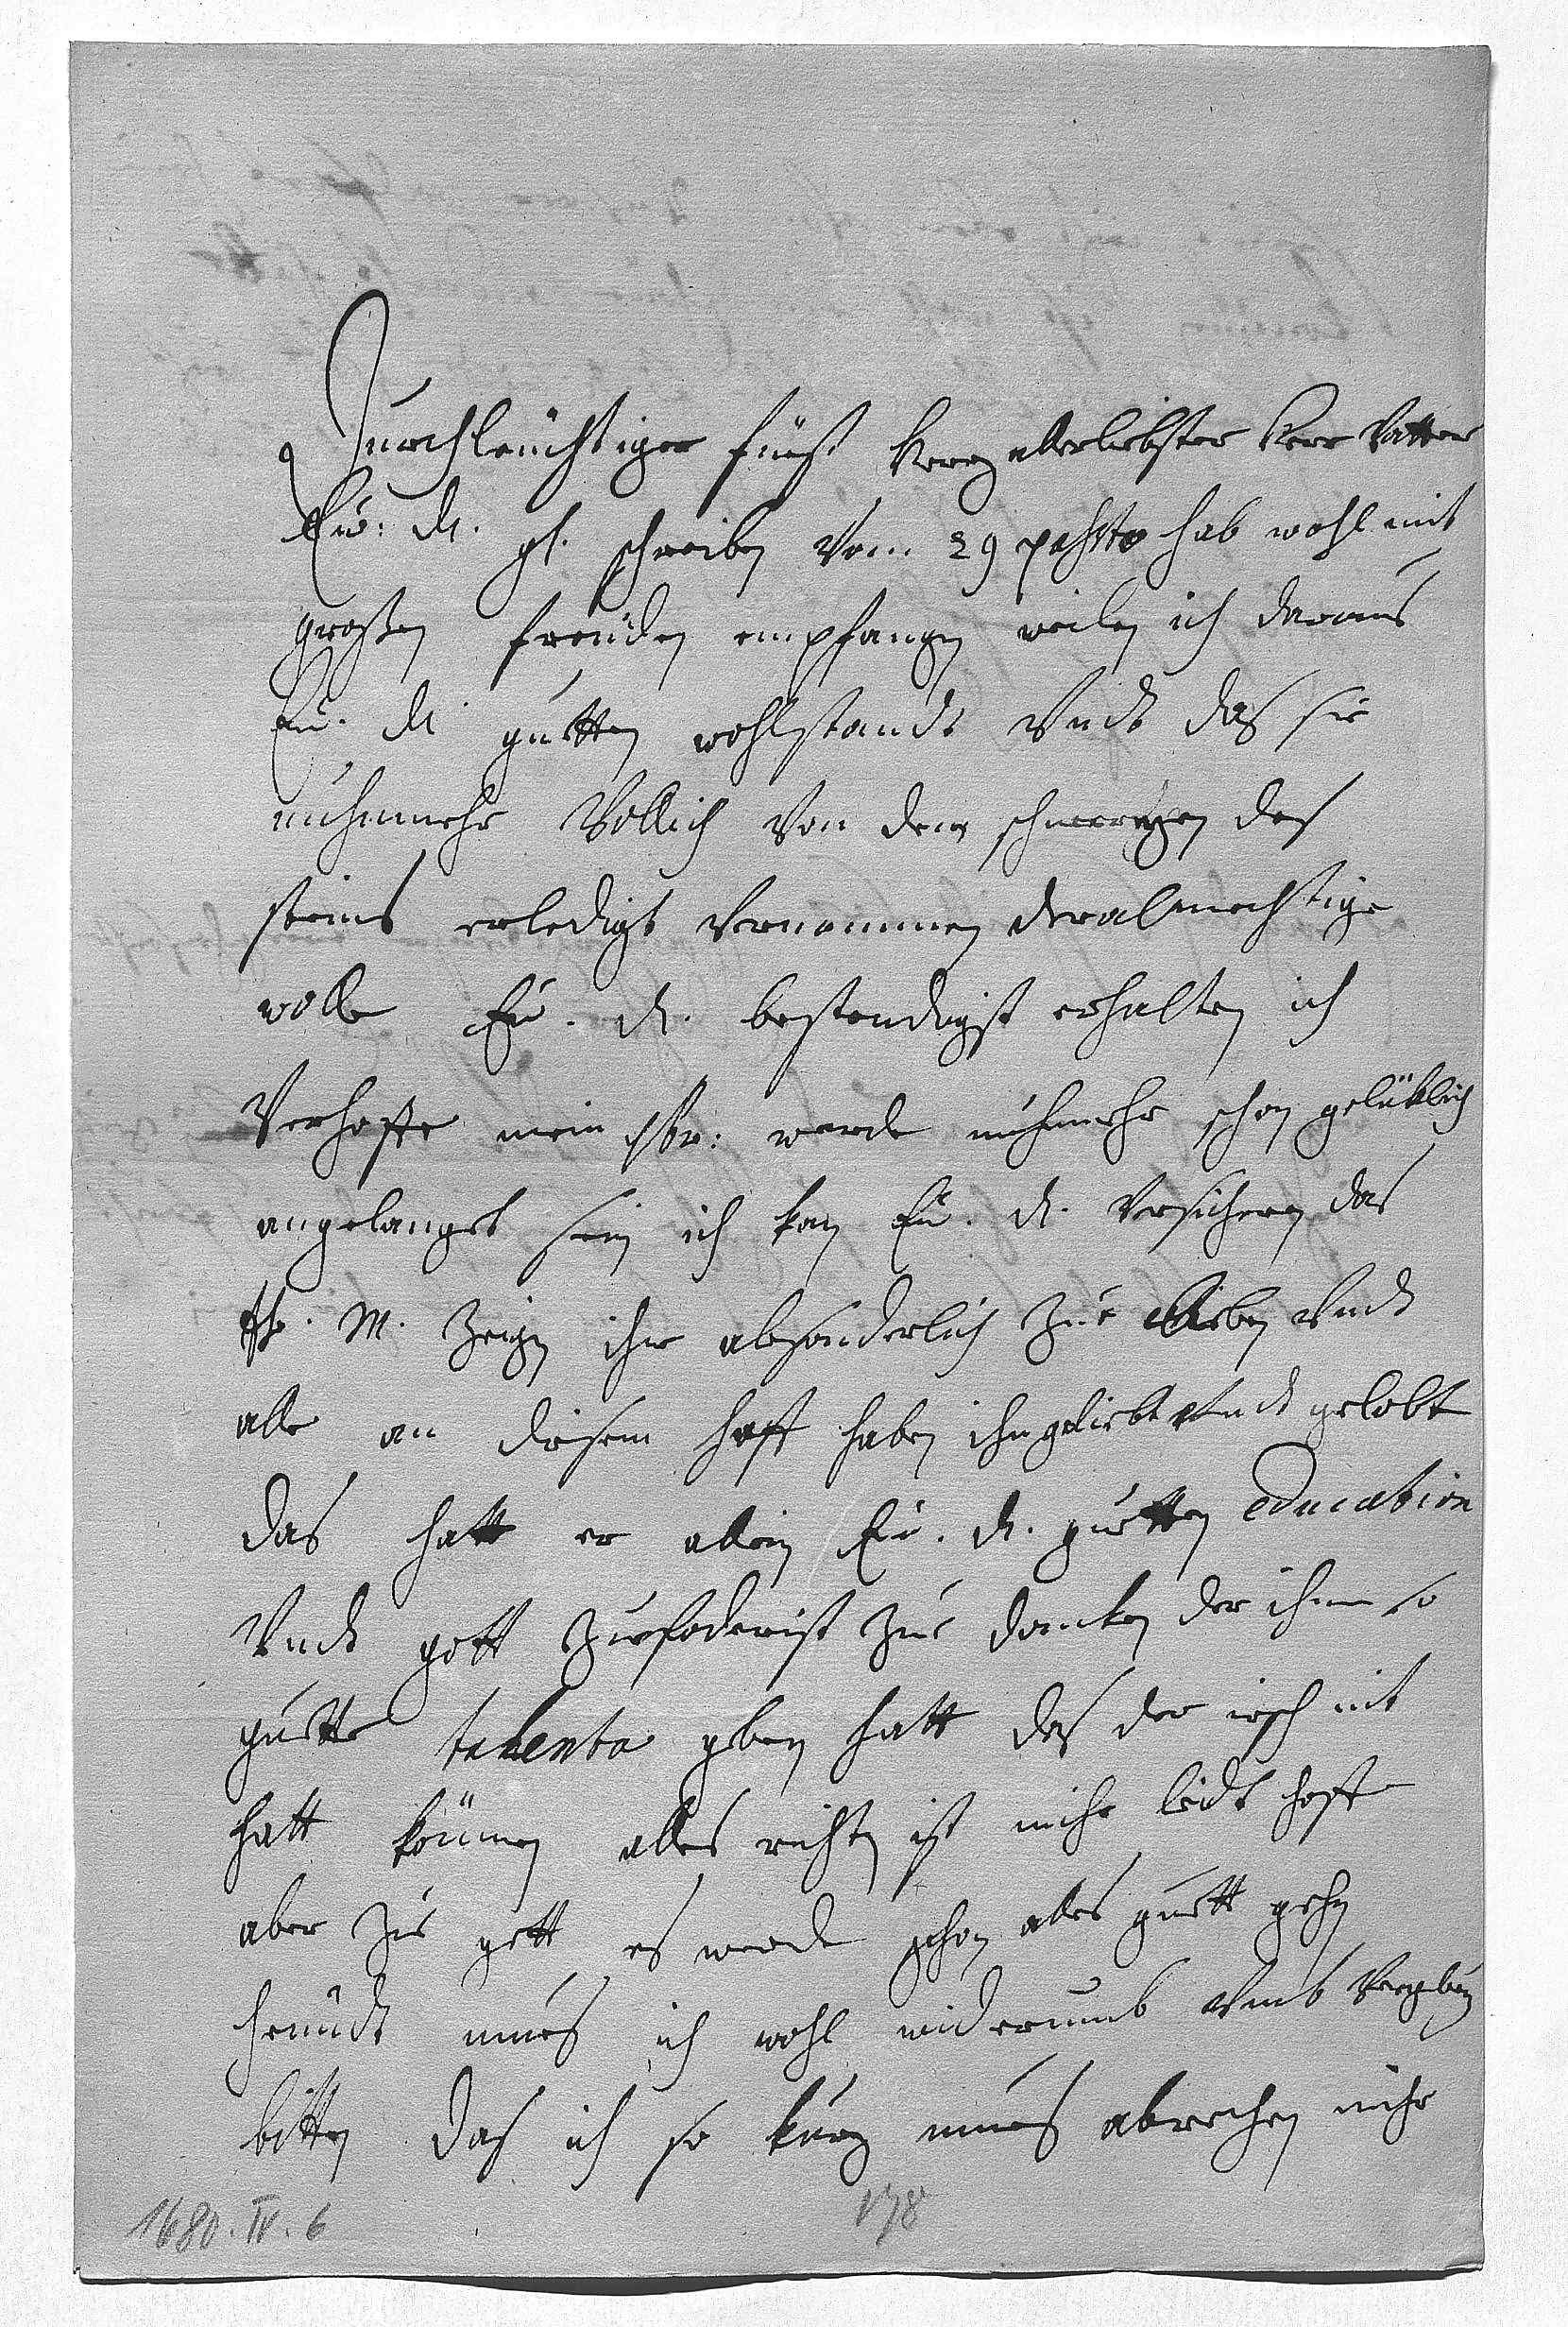 Durchleüchtiger fürst herz allerliebster herr Vatter
Eu: dl. gl. schreiben vom 29 pahsto hab wohl mit
großen freüden empfangen weilen ich daraus
Eu. dl. guetten wohlstandt Vndt das sie
nuhnmehr Vollich von dem schmerzen des
steins erledigt vernommen der almechtige
wolle Eu. dl. bestendigst erhalten ich
Verhoffe mein br: werde nuhnmehr schon gelüklich
angelanget sein ich kan Eu. dl. versichern das
Ih. M. Zeigen ihn absonderlich zue lieben Vndt
alle an diesem hoff haben ihn geliebt Vndt gelobt
das hatt er allein Eu. dl. guetten education
Vndt gott zuefoderist zue dancken der ihm so
guette talenta geben hatt das der nit
hatt können alles richten ist mihr leidt hoffe
aber zu gott es werde schon alles guett gehen
heündt mues ich wohl widerumb vmb Vergebung
bitten das ich so kurz mues abrechen mihr
1680. IV. 6
178